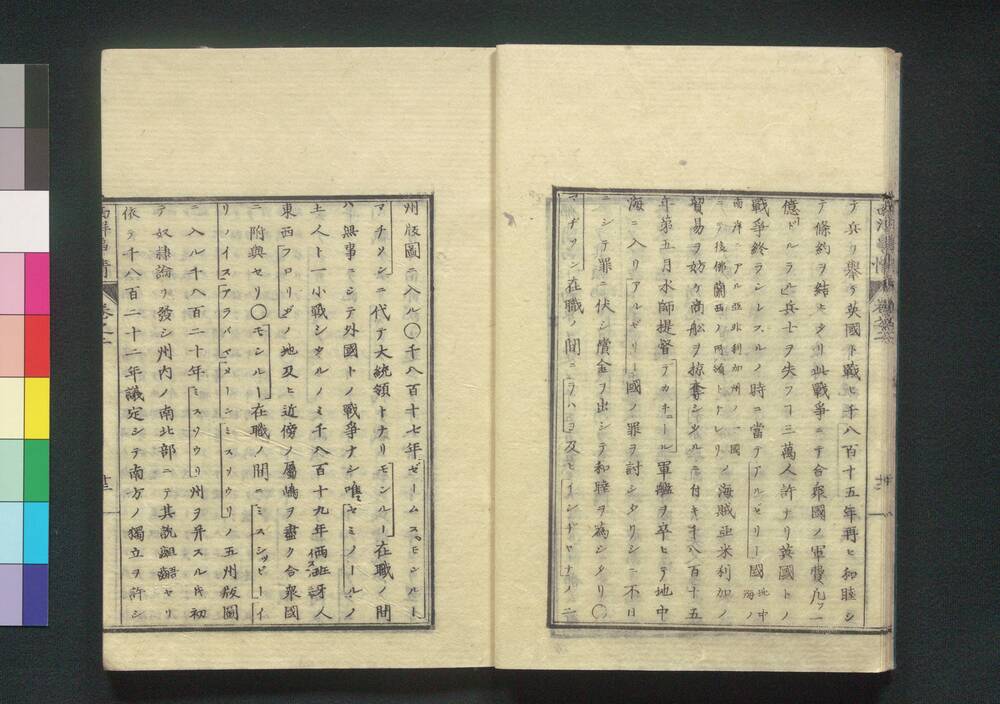 テ兵ヲ擧ケ英國ト戰ヒ千八百十五年再ヒ和睦シ
テ條約ヲ結ヒタリ此戰爭ニテ合衆國ノ軍費凡ソ一
億ドルラル兵士ヲ失フヿ三萬人許ナリ英國トノ
戰爭終ランレスルノ時ニ當テアルゼリー國地中海ノ
南岸ニアル亞非利加州ノ一國
ニテ後佛蘭西ノ所領トナレリノ海賊亞米利加ノ
貿易ヲ妨ケ商舩ヲ掠奪シタルニ付キ千八百十五
年第五月水師提督デカチュール軍艦ヲ卒ヒテ地中
海ニ入リアルゼリー國ノ罪ヲ討シタリシニ不日
ニシテ罪ニ伏シ償金ヲ出シテ和睦ヲ為シタリ〇
マヂソン在職ノ間ニヲハヨ及ヒインヂヤナノ二
州版圖ニ入ル〇千八百十七年ゼームスモンルー
マヂソンニ代テ大統領トナリモンルー在職ノ間
ハ無事ニシテ外國トノ戰爭ナシ唯セミノールノ
土人ト一小戰シタルノミ千八百十九年西班牙人
東西フロリダノ地及ヒ近傍ノ屬嶋ヲ盡ク合衆國
ニ附與セリ〇モンルー在職ノ間ニミスシッピーイ
リノイスアラバマメーンミスソウリノ五州版圖
ニ入ル千八百二十年ミスソウリ州ヲ幷スル片初
テ奴隷論ヲ發シ州内ノ南北部ニテ其説齟齬セリ
依テ千八百二十二年議定シテ南方ノ獨立ヲ許シ